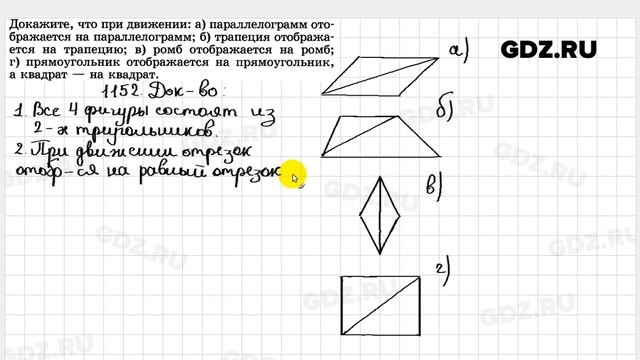 Докажите, что при движении: а) параллелограмм ото-
бражается на параллелограмм; б) трапеция отобража-
ется на трапецию; в) ромб отображается на ромб;
г) прямоугольник отображается на прямоугольник,
а квадрат — на квадрат.
GDZ.RU
1152. Док-во:
1. Все 4 фигуры состоят из
2-х триугольников.
2. При движении отрезок
отобр-ся на равный отрезок
а)
б)
в)
г)
GDZ.RU
GDZ.RU
GDZ.RU
GDZ.RU
GDZ.RU